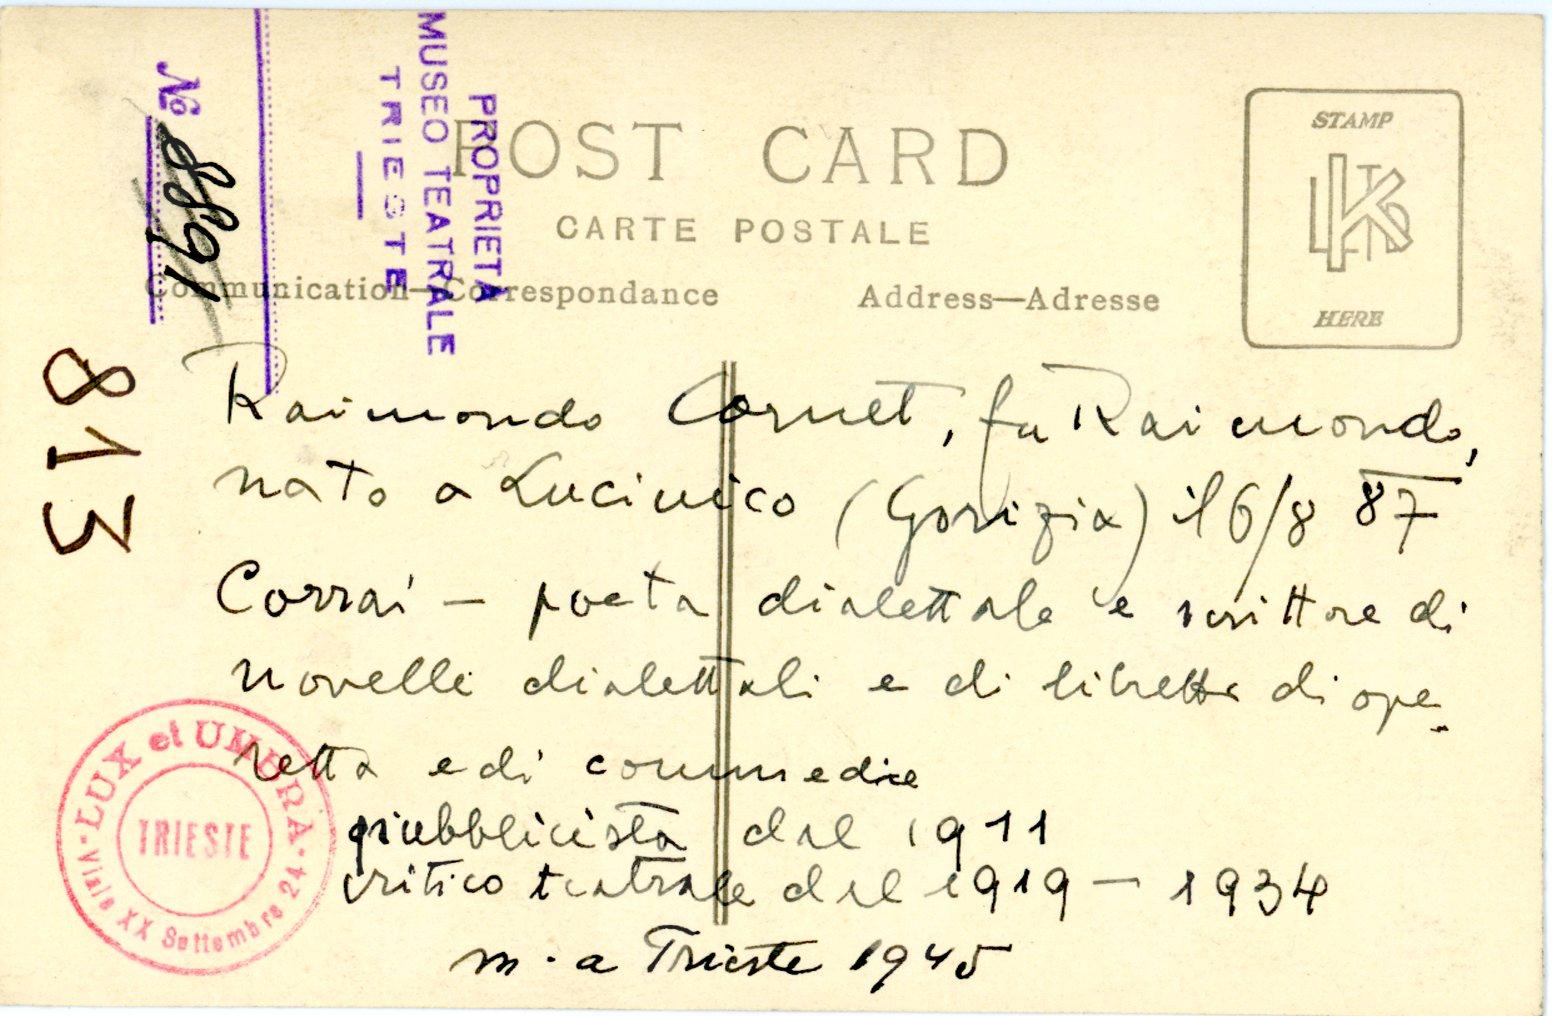 PROPRIETÀ
MUSEO TEATRALE
TRIESTE
No 8891
813
POST CARD
CARTE POSTALE
Communication—Correspondance
Address—Adresse
STAMP
HERE
Raimondo Cornet, fu Raimondo,
nato a Lucinico (Gorizia) il 6/8 87
Corrai — poeta dialettale e scrittore di
novelle dialettali e di libretti di ope-
retta e di commedie
pubblicista dal 1911
critico teatrale dal 1919 — 1934
m. a Trieste 1945
LUX et UMBRA
TRIESTE
Viale XX Settembre 24